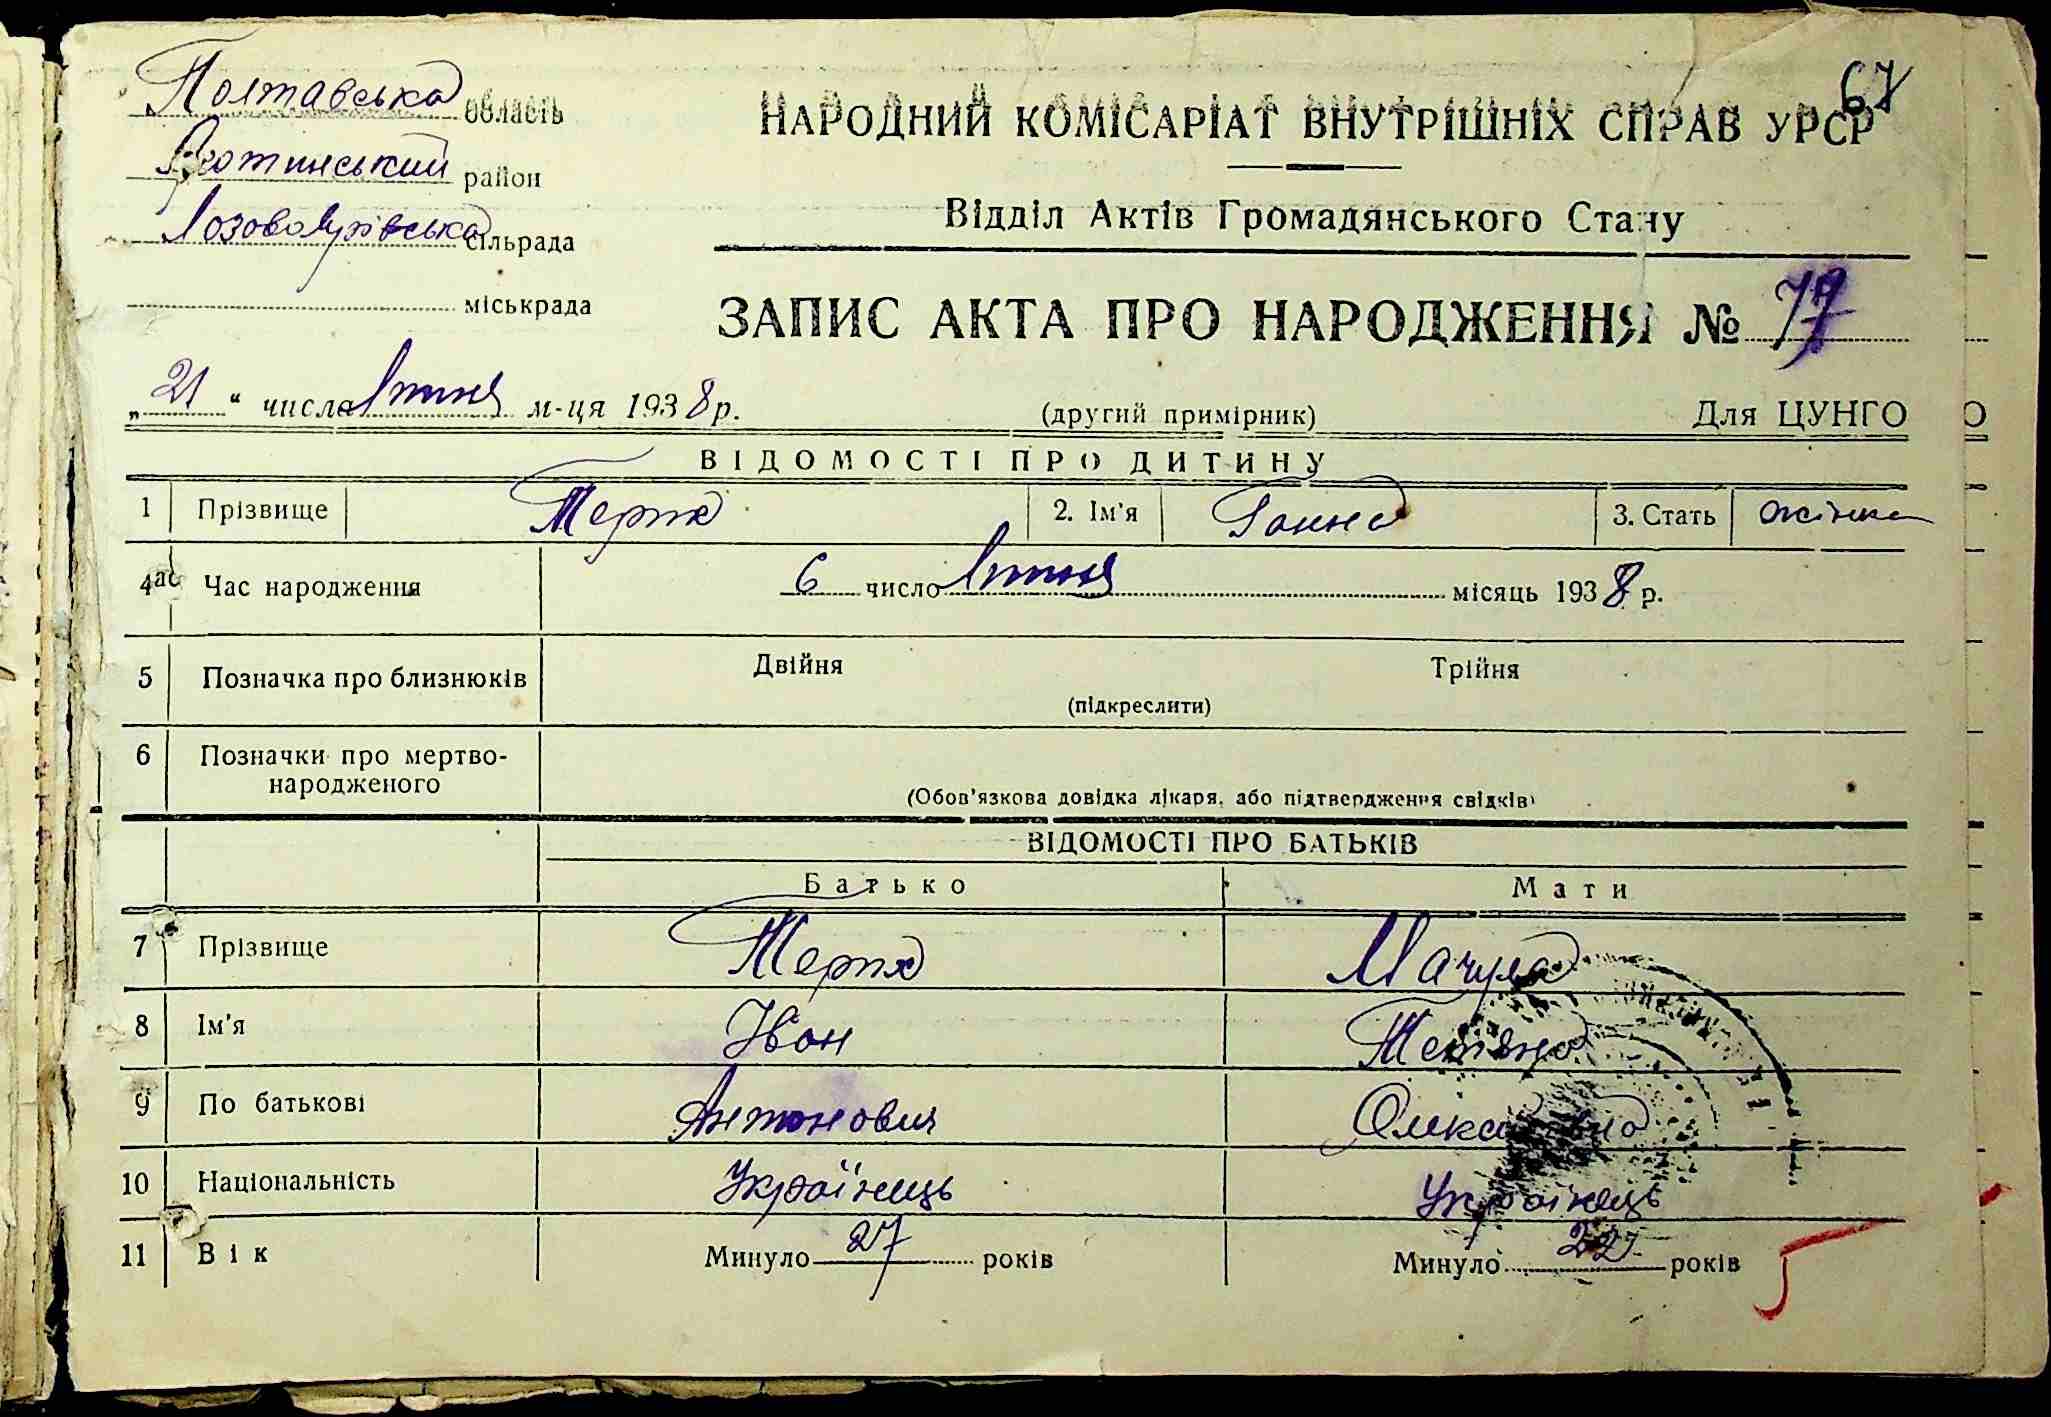 67
Полтавська область
НАРОДНИЙ КОМІСАРІАТ ВНУТРІШНІХ СПРАВ УРСР
Яготинський район
Відділ Актів Громадянського Стану
сільрада
міськрада
ЗАПИС АКТА ПРО НАРОДЖЕННЯ № 77
„21“ число липня м-ця 1938 р.
(другий примірник)
Для ЦУНГО
ВІДОМОСТІ ПРО ДИТИНУ
1 Прізвище 2. Ім'я Ганна 3. Стать жіноча
4 Час народження 6 число липня місяць 1938 р.
5 Позначка про близнюків Двійня Трійня
(підкреслити)
6 Позначки про мертво-
народженого
(Обов'язкова довідка лікаря, або підтвердження свідків)
ВІДОМОСТІ ПРО БАТЬКІВ
Батько Мати
7 Прізвище Мачула
8 Ім'я Іван Тетяна
9 По батькові Антонович
10 Національність Українець Українець
11 Вік Минуло 27 років Минуло років